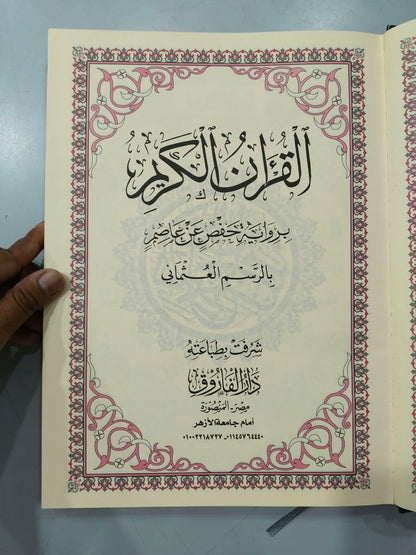 القرآن الكريم
برواية حفص عن عاصم
بالرسم العثماني
شرفت بطباعته
دار الفاروق
مصر - المنصورة
أمام جامعة الأزهر
٠١١٤٥٧٦٤٤٤٠ - ٠١٠٠٢٢١٨٧٢٧